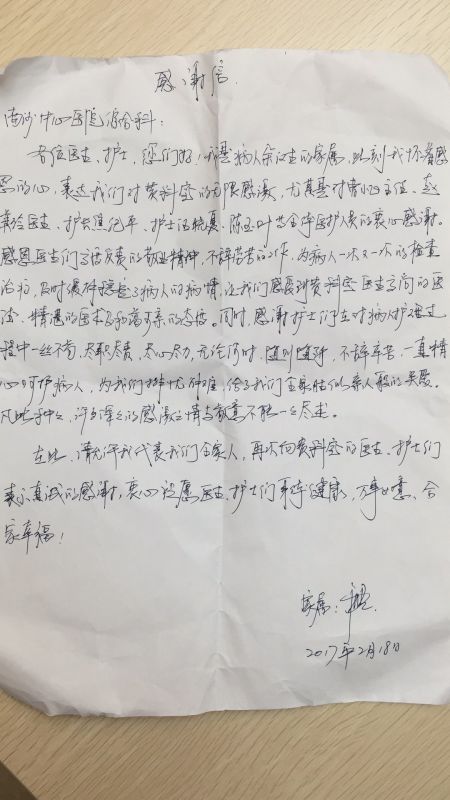 感谢信
南沙中心医院综合科：
各位医生、护士，您们好！我是病人余汉生的家属，此刻我怀着感
恩的心，表达我们对贵科室的无限感激，尤其是对曹小正主任、赵
医生、护士长 护士 全体医护人员的衷心感谢。
感恩医生们高度负责的敬业精神，不辞劳苦的工作，为病人一次又一次的检查
治疗，及时缓解稳定了病人的病情，让我们感受到贵科室医生高尚的医
德、精湛的医术及和蔼可亲的态度。同时，感谢护士们在对病人护理过
程中一丝不苟，尽职尽责，尽心尽力，无论何时，随叫随到，不辞辛苦，一直精
心呵护病人，为我们排忧解难，给了我们全家胜似亲人般的关爱。
凡此种种，许许多多的感激之情与敬意不能一一尽述。
在此，请允许我代表我们全家人，再次向贵科室的医生、护士们
表示真诚的感谢，衷心祝愿医生、护士们身体健康，万事如意、合
家幸福！
家属：
2017年2月18日